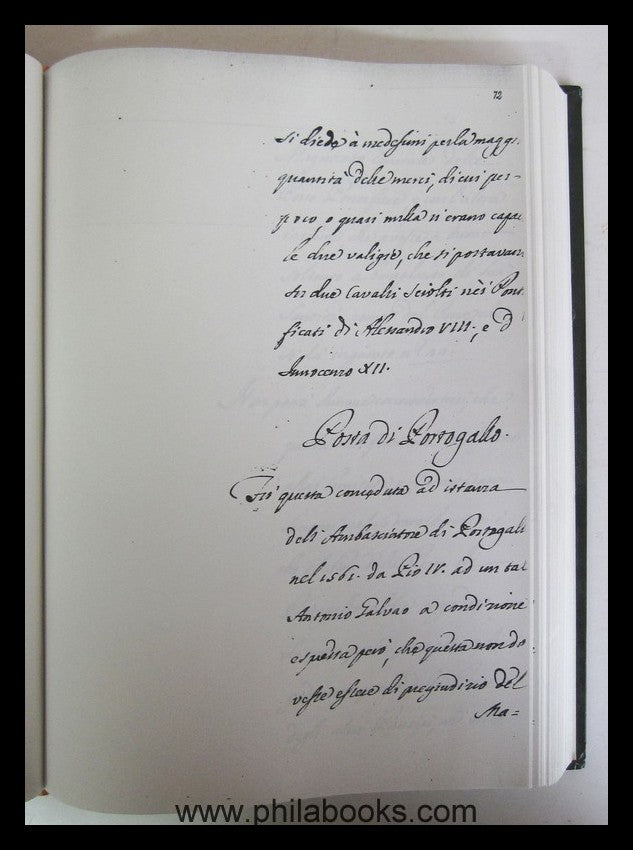 72
si diede à medesimi per la maggi
quantità delle merci, di cui per-
poco, o quasi nulla n'erano capac
le due valigie, che si portavan
su due Cavalli sciolti nèi Pont
ficati di Alessandro VIII., e d
Innocenzo XII.
Posta di Portogallo.
Fù questa conceduta ad istanza
dell Ambasciatore di Portogall
nel 1561. da Pio IV. ad un tal
Antonio Galvao a condizione
espressa però, che questa non do
vesse essere di pregiudizio del
Ma=
www.philabooks.com